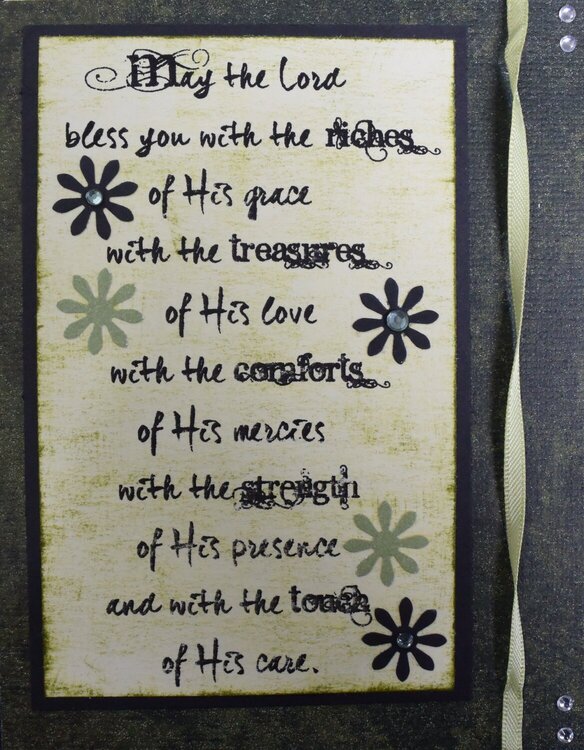 May the Lord
bless you with the riches
of His grace
with the treasures
of His love
with the comforts
of His mercies
with the strength
of His presence
and with the touch
of His care.